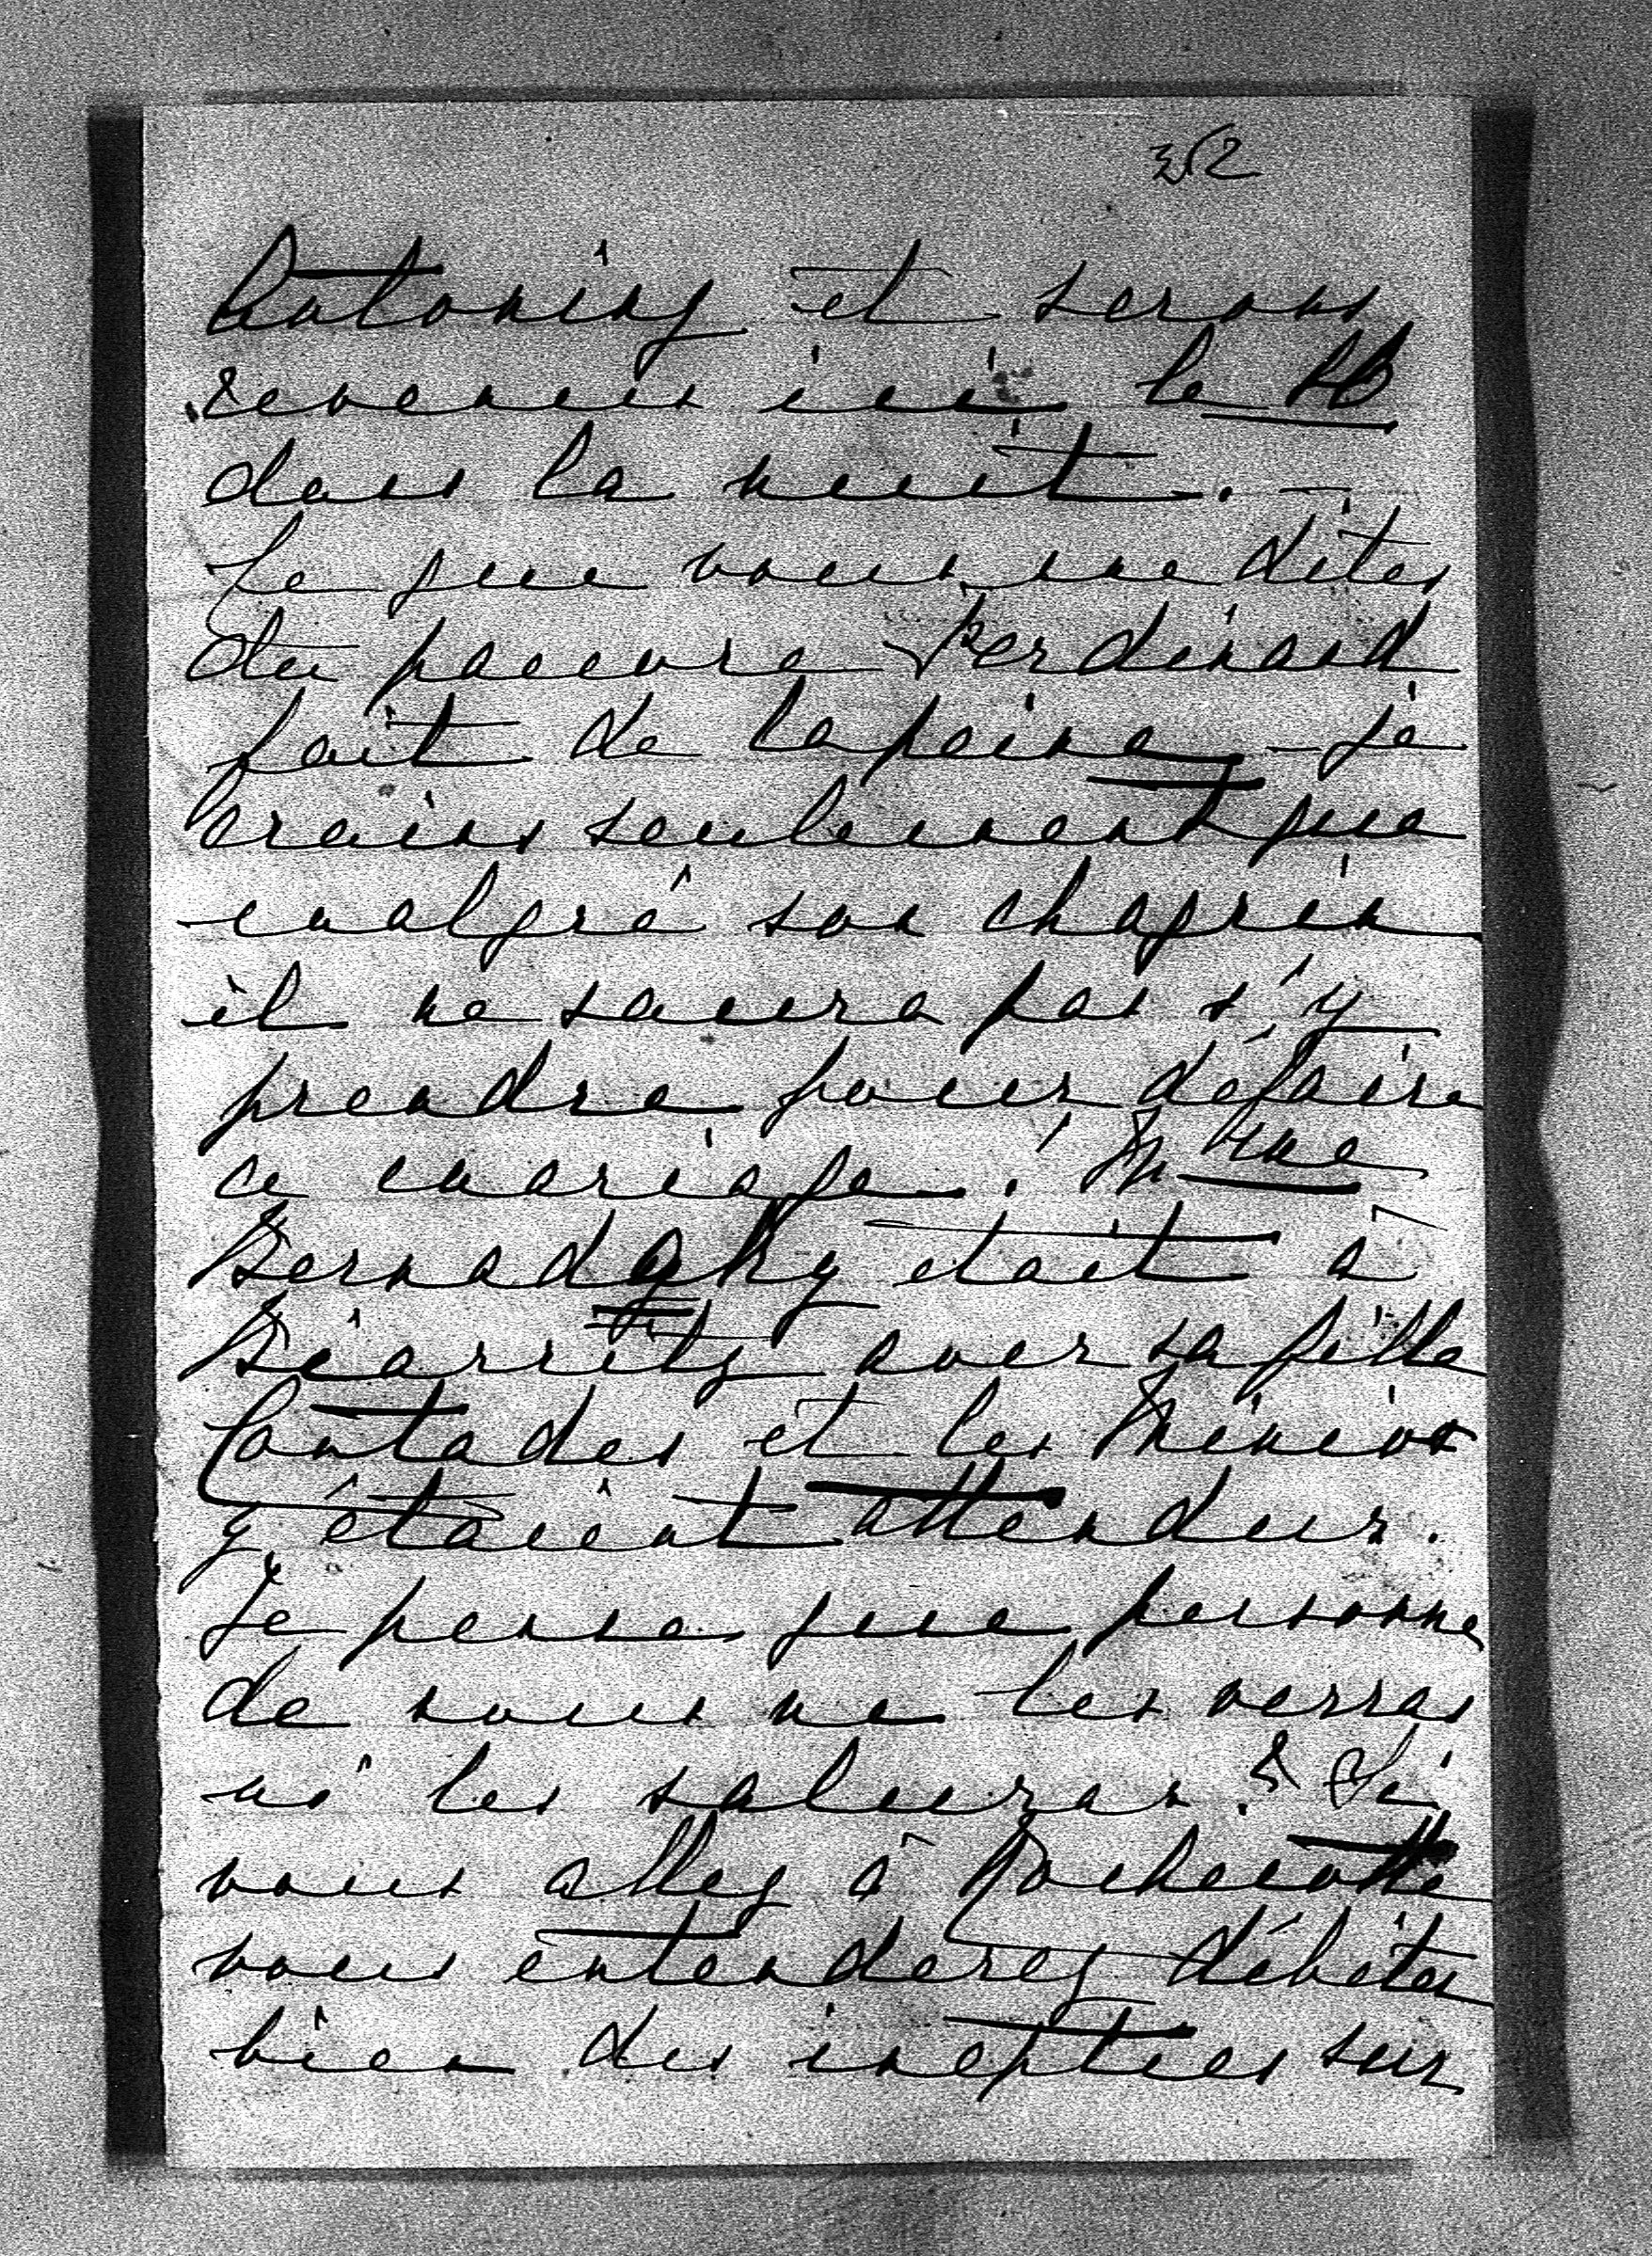 352
Antoniny et serons
revenus ici le 
dans la nuit. —
Ce que vous me dites
du pauvre Ferdinand
fait de la peine – je
crains seulement que
malgré son chagrin
il ne saura pas s'y
prendre pour défaire
ce mariage. ! Mme
Bernadaky etait à
Biarritz avec sa fille
Contades et les
y étaient attendus.
Je pense que personne
de nous ne les verras
ni les salueras. ? Si
vous allez à Rochecotte
vous entenderez débiter
bien des inepties sur